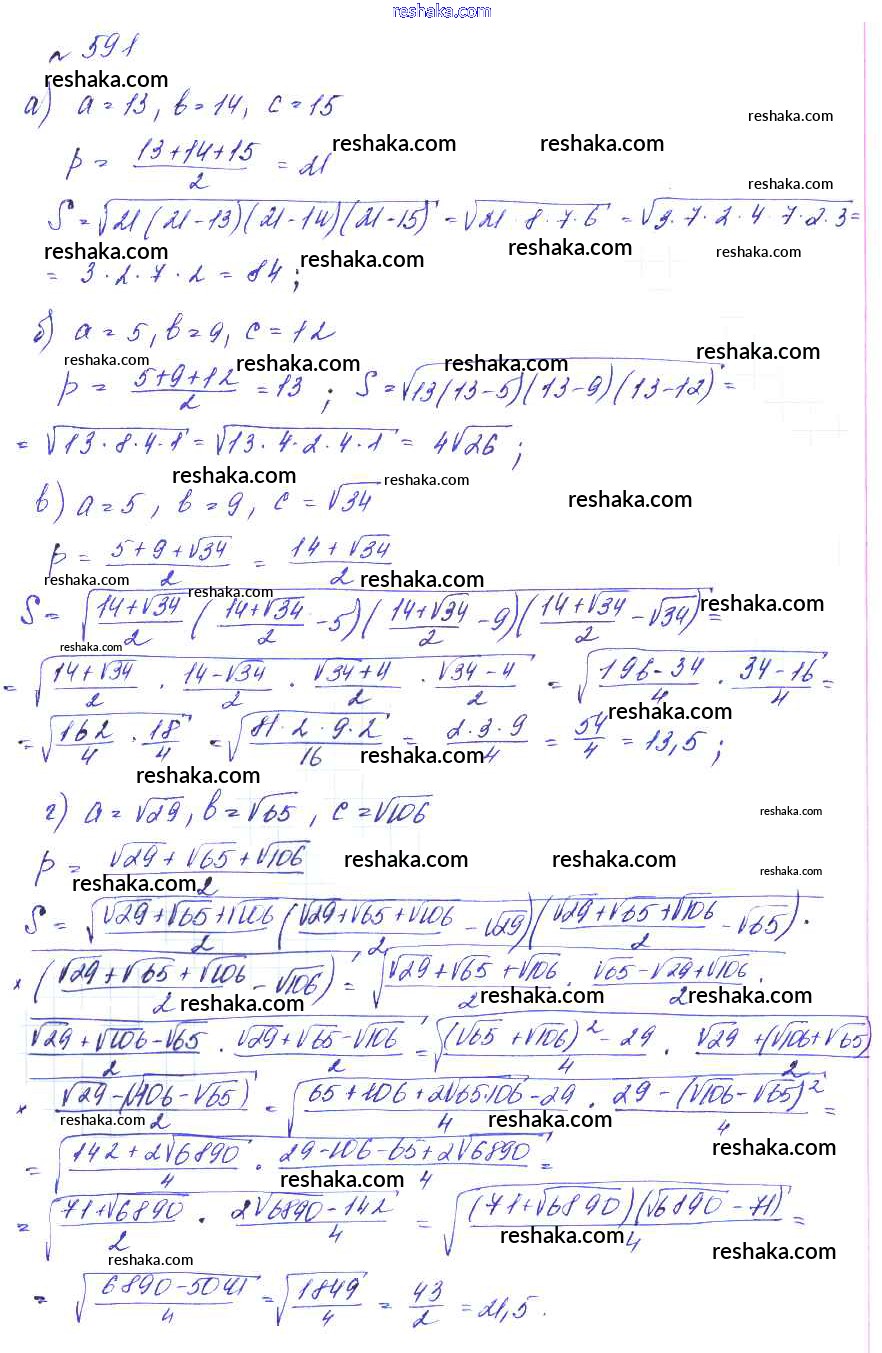 reshaka.com
№ 591
reshaka.com
а) a = 13, в = 14, c = 15
reshaka.com
p = (13+14+15)/2 = 21
reshaka.com reshaka.com
reshaka.com
S = √(21(21-13)(21-14)(21-15)) = √(21·8·7·6) = √(3·7·2·4·7·2·3) =
reshaka.com reshaka.com reshaka.com reshaka.com
= 3·2·7·2 = 84;
б) a = 5, в = 9, c = 12
reshaka.com reshaka.com reshaka.com reshaka.com
p = (5+9+12)/2 = 13; S = √(13(13-5)(13-9)(13-12)) =
= √(13·8·4·1) = √(13·4·2·4·1) = 4√26;
reshaka.com reshaka.com reshaka.com
в) a = 5, в = 9, c = √34
p = (5+9+√34)/2 = (14+√34)/2
reshaka.com reshaka.com reshaka.com
S = √((14+√34)/2 ((14+√34)/2 - 5)((14+√34)/2 - 9)((14+√34)/2 - √34)) =
reshaka.com reshaka.com
= √((14+√34)/2 · (14-√34)/2 · (√34+4)/2 · (√34-4)/2) = √((196-34)/4 · (34-16)/4) =
reshaka.com
= √(162/4 · 18/4) = √((81·2·9·2)/16) = (2·3·9)/4 = 54/4 = 13,5;
reshaka.com
г) a = √29, в = √65, c = √106
reshaka.com
p = (√29+√65+√106)/2
reshaka.com reshaka.com reshaka.com reshaka.com
S = √((√29+√65+√106)/2 ((√29+√65+√106)/2 - √29)((√29+√65+√106)/2 - √65) ·
× ((√29+√65+√106)/2 - √106)) = √((√29+√65+√106)/2 · (√65-√29+√106)/2 ·
reshaka.com reshaka.com reshaka.com
(√29+√106-√65)/2 · (√29+√65-√106)/2) = √(((√65+√106)²-29)/4 · (√29+(√106+√65))/2
× (√29-(√106-√65))/2 = √((65+106+2√65·106-29)/4 · (29-(√106-√65)²)/4) =
reshaka.com reshaka.com reshaka.com
= √((142+2√6890)/4 · (29-106-65+2√6890)/4) =
reshaka.com
= √((71+√6890)/2 · (2√6890-142)/4) = √(((71+√6890)(√6890-71))/4) =
reshaka.com reshaka.com reshaka.com
= √((6890-5041)/4) = √(1849/4) = 43/2 = 21,5.